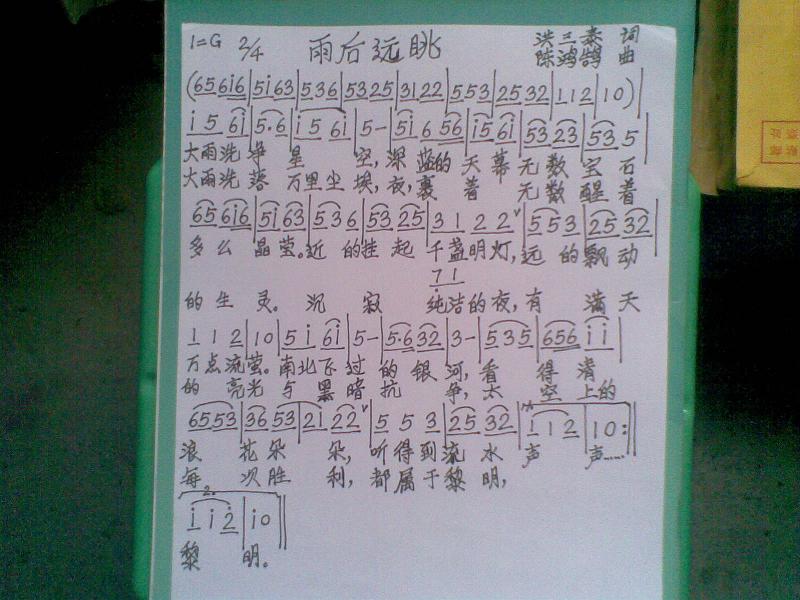 1=G 2/4 雨后远眺 洪三泰 词
陈鸿鹄 曲
(656i6|5i63|536|5325|3122|553|2532|112|10)|
i 5 6i|5·6|i 5 6i|5-|5i 6 56|i5 6i|53 23|53 5|
大雨洗净 星 空,深蓝的天幕无数宝石
大雨洗落 万里尘埃,夜,裹着 无数醒着
65 6i6|5i 63|53 6|53 25|3 1 2 2|5 5 3|25 32|
多么晶莹。近的挂起千盏明灯,远的飘动
7 1
的生灵。沉寂 纯洁的夜,有 满天
1 1 2|10|5 i 6i|5-|5·6 32|3-|5 3 5|656 i i|
万点流萤。南北飞过的银河,看 得清
的亮光与黑暗抗 争,太 空上的
65 53|36 53|21 22|5 5 3|25 32|1 1 2|10:|
浪花朵 朵,听得到流水声 声……
每次胜 利,都属于黎明,
2.
i i 2|i0||
黎 明。